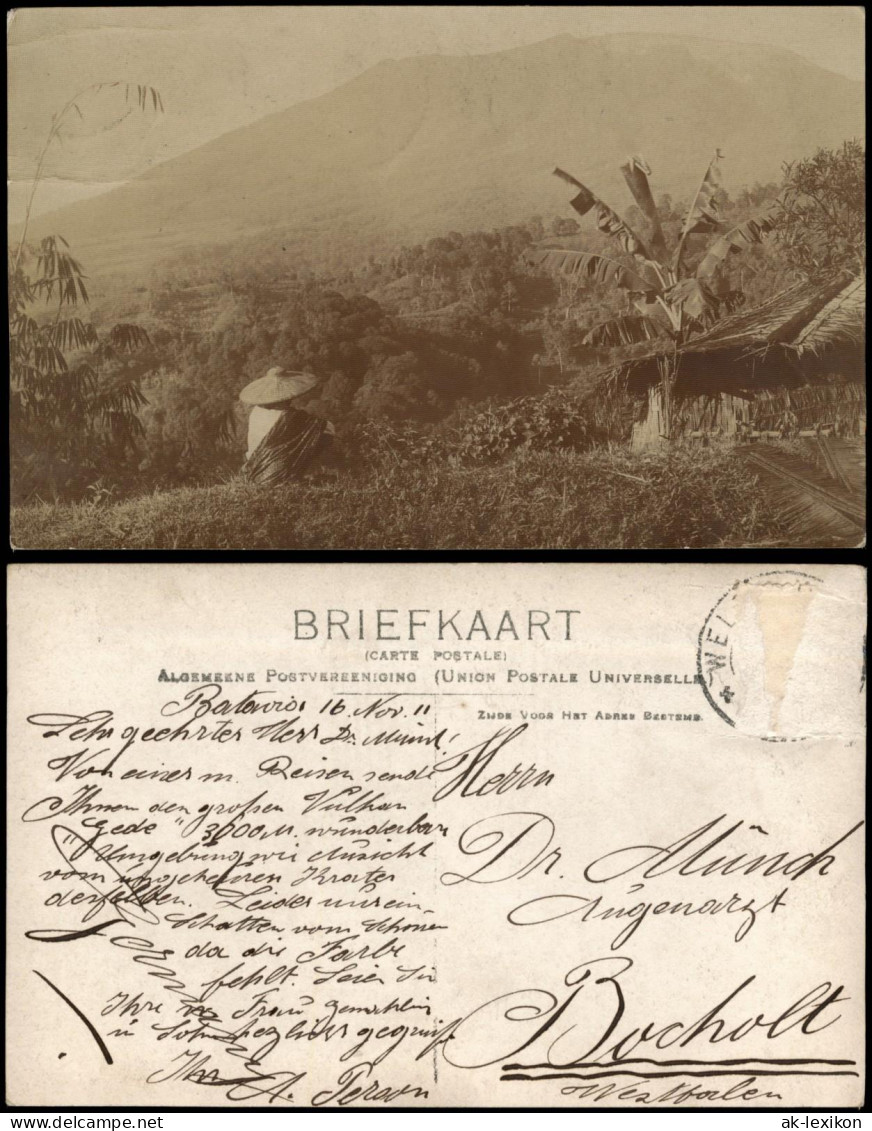 BRIEFKAART
(CARTE POSTALE)
ALGEMEENE POSTVEREENIGING (UNION POSTALE UNIVERSELLE
ZIJDE VOOR HET ADRES BESTEMD.
WEL
Batavia 16. Nov. 11
Sehr geehrter Herr Dr. Münch!
Von einer m. Reisen sende
Ihnen den großen Vulkan
"Gede" 3000 M. wunderbare
Umgebung wie Aussicht
vom ungeheuren Krater
derselben. Leider nur ein
Schatten vom Schönen
da die Farbe
fehlt. Seien Sie
Ihre Frau Gemahlin
u Sohn herzlichst gegrüßt
Ihr A. Person
Herrn
Dr. Münch
Augenarzt
Bocholt
Westfalen
ak-lexikon